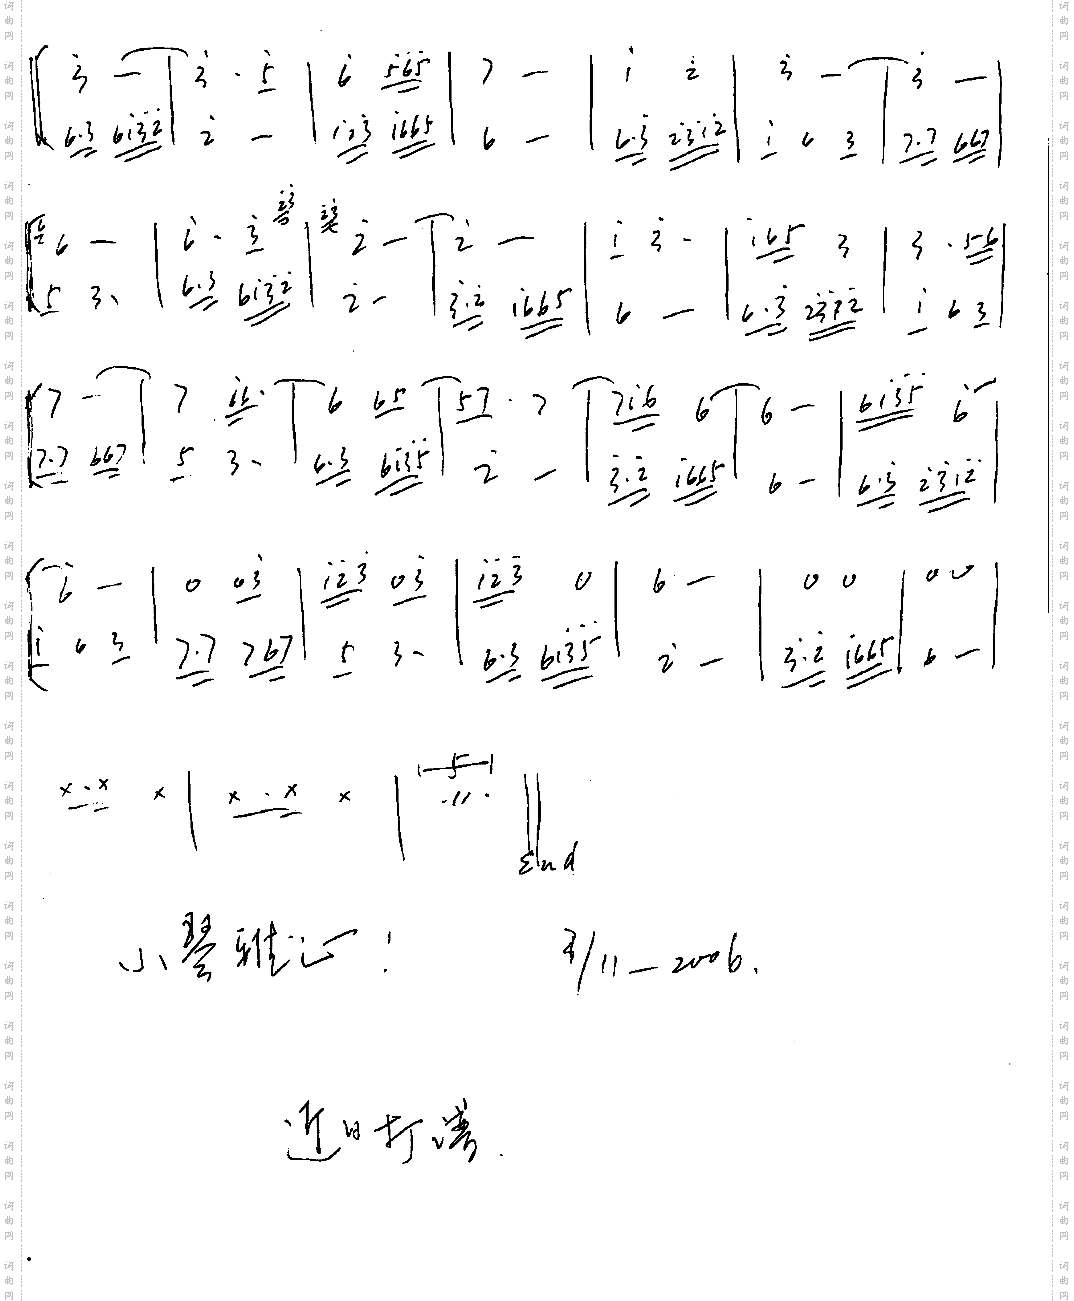 3̇ — | 3̇ · 5̇ | 6̇ 5̇6̇5̇ | 7 — | 1̇ 2̇ | 3̇ — | 3̇ — |
6·3̇ 61̇3̇2̇ | 2̇ — | 1̇2̇3̇ 1̇665 | 6 — | 6·3̇ 2̇3̇1̇2̇ | 1̇ 6 3 | 7·7 667 |
6 — | 6̇ · 3̇ | 2̇ — | 2̇ — | 1̇ 3̇ · | 1̇65 3 | 3 · 56 |
5 3 · | 6·3 61̇3̇2̇ | 2̇ — | 3̇·2̇ 1̇665 | 6 — | 6·3̇ 2̇3̇1̇2̇ | 1̇ 6 3 |
7 — | 7 | 6 65 | 57 · 7 | 71̇6 6 | 6 — | 61̇3̇5̇ 6̇ |
7·7 667 | 5 3 · | 6·3 61̇3̇5̇ | 2̇ — | 3̇·2̇ 1̇665 | 6 — | 6·3̇ 2̇3̇1̇2̇ |
6̇ — | 0 03̇ | 1̇2̇3̇ 03̇ | 1̇2̇3̇ 0 | 6 — | 0 0 | 0 0 |
1̇ 6 3 | 7·7 767 | 5 3 · | 6·3 61̇3̇5̇ | 2̇ — | 3̇·2̇ 1̇665 | 6 — |
x · x x | x · x x | 5 ‖
End
小琴雅正！ /11—2006.
近日打谱.
词曲网